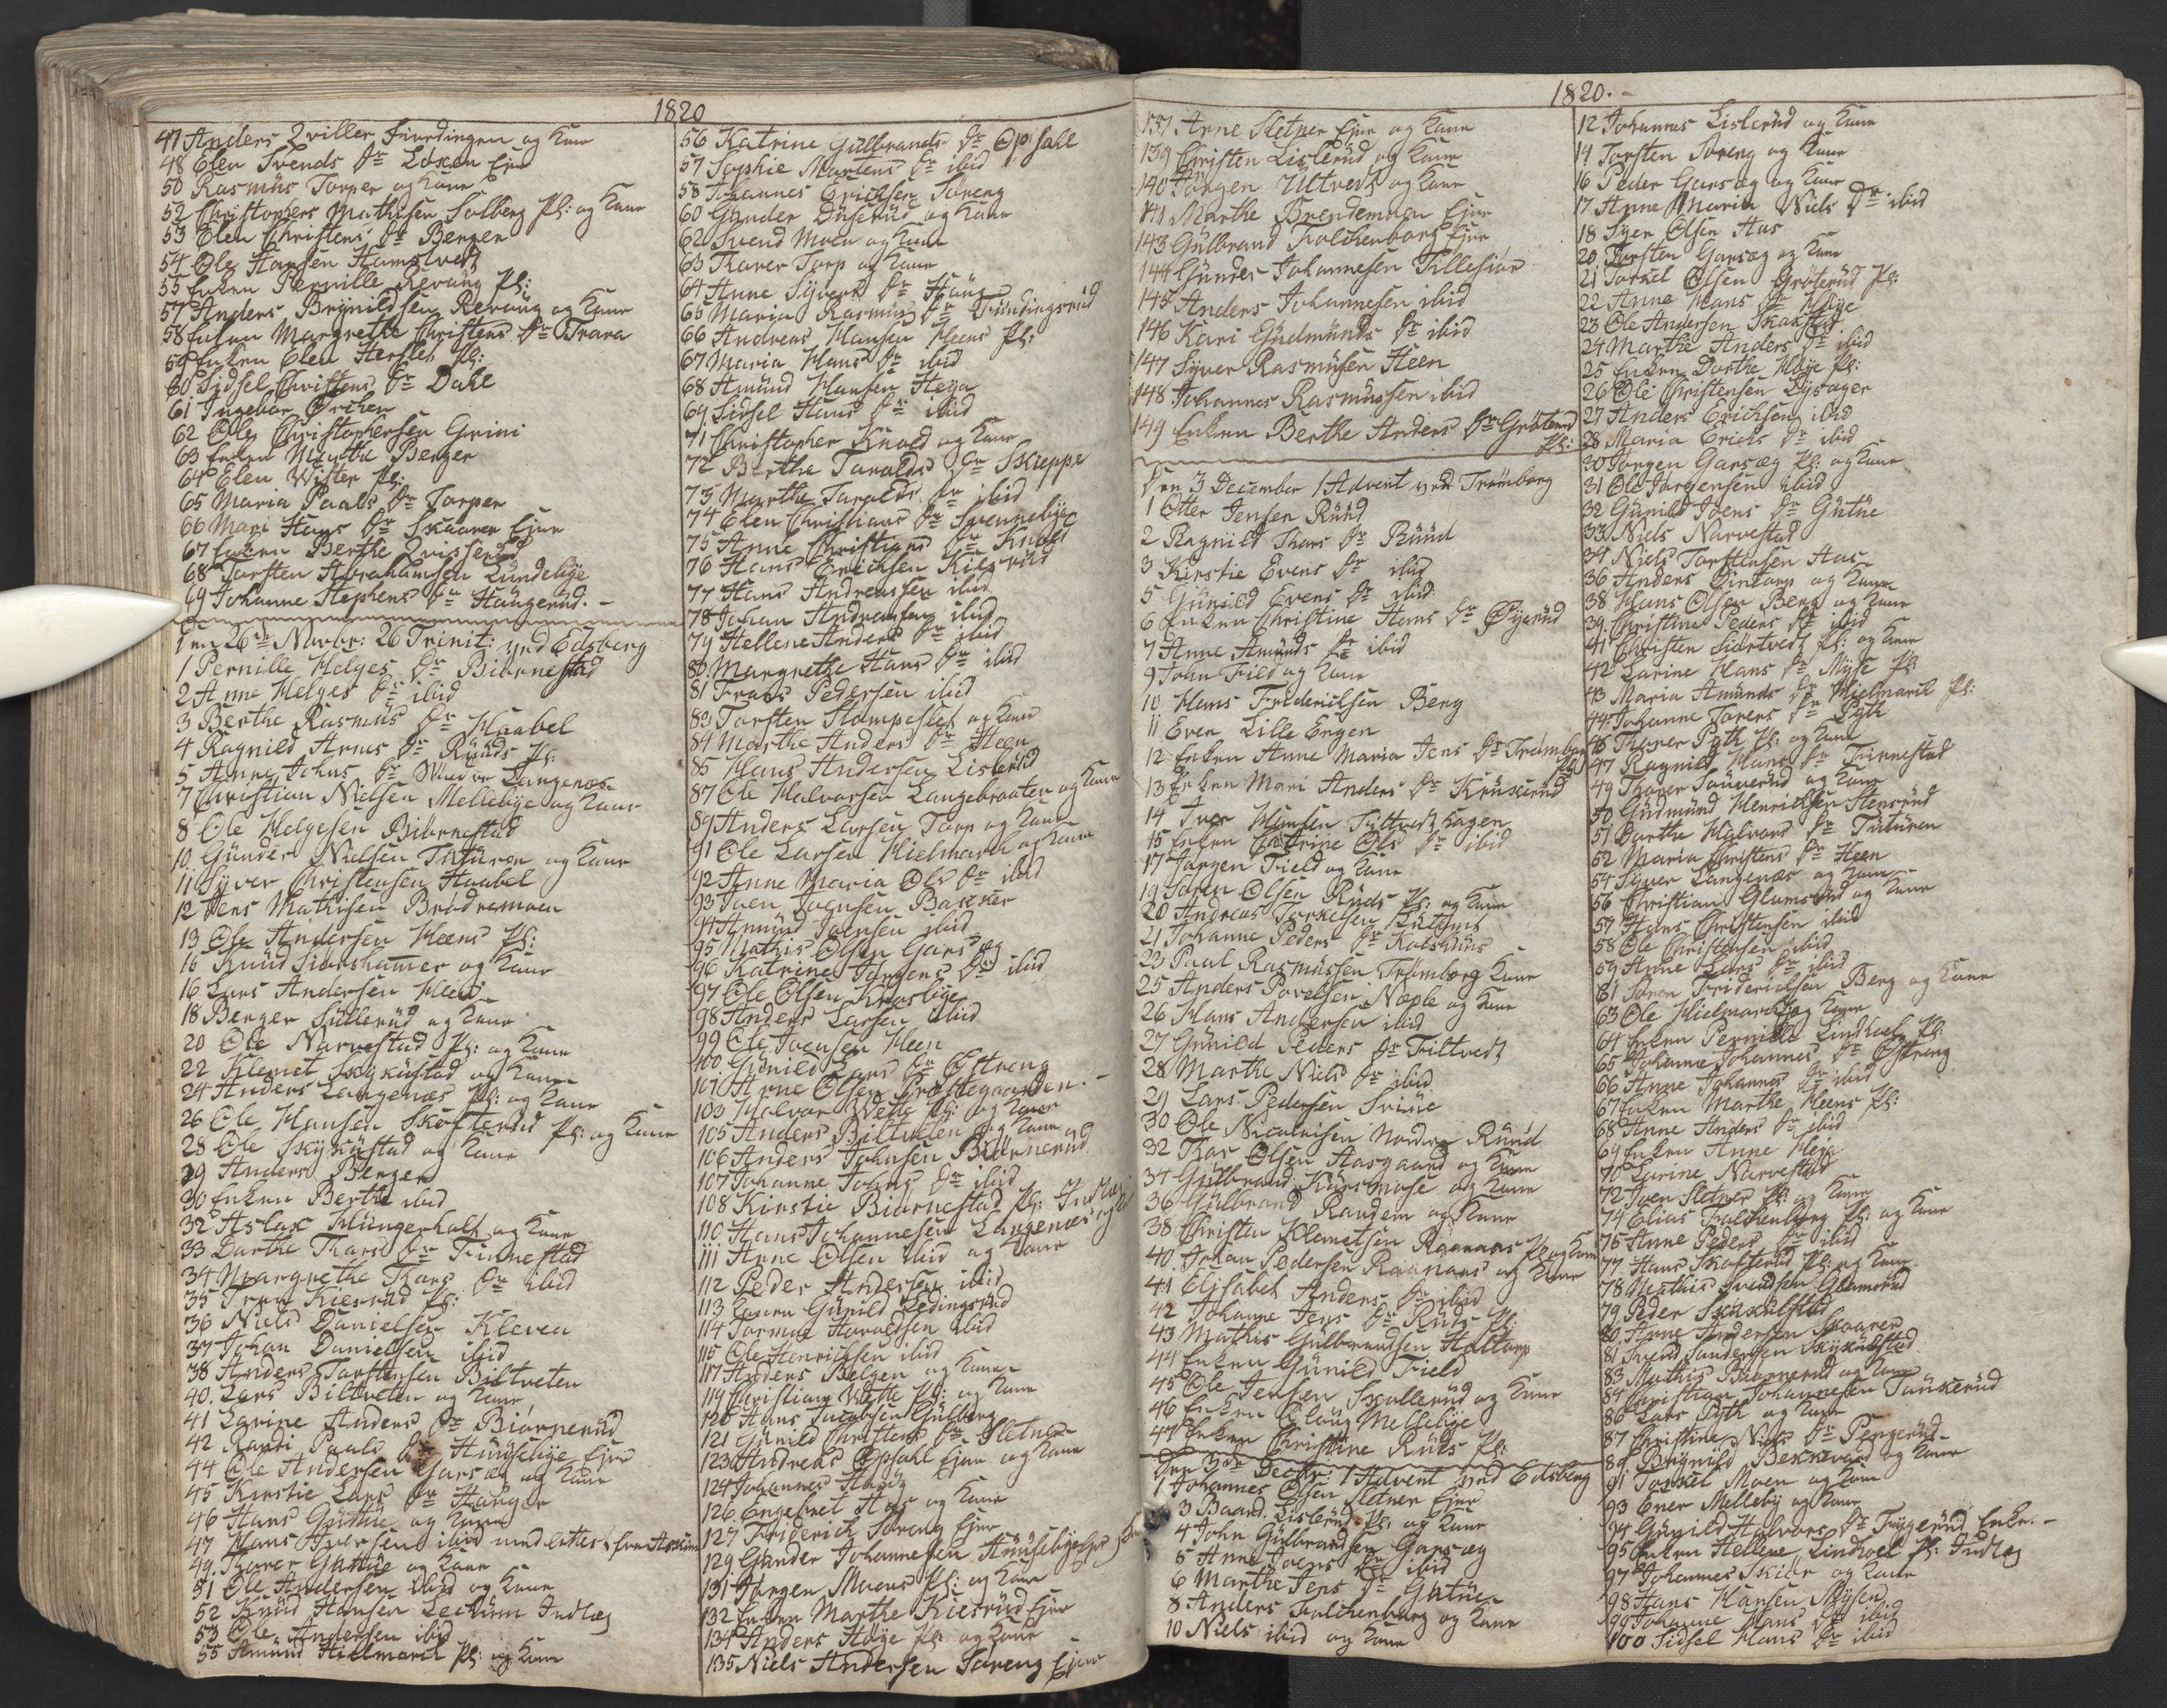 1820
47 Anders Qviller Fiurdingen og Kone
48 Elen Svends Dr Løken Ejer
50 Rasmus Torper og Kone
52 Christophers Mathisen Solberg Pl: og Kone
53 Elen Christens Dr Berger
54 Ole Hansen Hamstvedt
55 Enken Pernille Revoug Pl:
57 Anders Brynildsen Revoug og Kone
58 Enken Margrethe Christens Dr Trara
59 Enken Elen Herslet Pl:
60 Sidsel Christens Dr Dahl
61 Ingebor Ørchen
62 Ole Christophersen Grini
63 Enken Marthe Berger
64 Elen Wister Pl:
65 Maria Paals Dr Torper
66 Mari Hans Dr Skaarer Ejer
67 Enken Berthe Qvisserud
68 Torsten Abrahamsen Lundebye
69 Johanne Stephens Dr Haugerud. -
Den 26de Novbr: 26 Trinit: ved Edsberg
1 Pernille Helges Dr Biørnestad
2 Anne Helges Dr ibid
3 Berthe Rasmus Dr Haabel
4 Ragnild Arnes Dr Ründs Pl:
5 Anne Johns Dr Langenæs
7 Christian Nielsen Mellebye og Kone
8 Ole Helgesen Biørnestad
10 Günder Nielsen Tüturen og Kone
11 Syver Christensen Haabel
12 Jens Mathisen Brødremoen
13 Ole Andersen Heens Pl:
15 Knud Siorshammer og Kone
16 Lars Andersen Heen
18 Berger Süllerüd og Kone
20 Ole Narvestad Pl: og Kone
22 Klemet Skykülstad og Kone
24 Anders Langenæs Pl: og Kone
26 Ole Hansen Skofterud Pl: og Kone
28 Ole Skykülstad og Kone
29 Anders Berger
30 Enken Berthe ibid
32 Aslax Klüngerholt og Kone
33 Dorthe Thars Dr Finnestad
34 Margrethe Thars Dr ibid
35 Kiesrud Pl:
36 Niels Danielsen Kleven
37 Johan Danielsen ibid
38 Anders Torstensen Biltveten
40. Lars Biltveten og Kone
41 Larine Anders Dr Biørnerüd
42 Randi Paals Dr Hüüsebye Ejer
44 Ole Andersen Garsæg og Kone
45 Kirstie Lars Dr Hauger
46 Hans Güthüe og Kone
47 Hans Iversen ibid med attest fra Askim
49. Thorer Guthüe og Kone
51 Ole Andersen ibid og Kone
52 Knud Hansen Lechum Indlæg
53 Ole Andersen ibid
55 Amund Hielmarck Pl: og Kone
56 Katrine Gülbrands Dr Opsahl
57 Sophie Martens Dr ibid
58 Johannes Erichsen Soreng
60 Günder Düserüd og Kone
62 Svend Moen og Kone
63 Thorer Torp og Kone
64 Anne Syvers Dr Haug
65 Maria Rasmus Dr Fündingsrüd
66 Andreas Hansen Heens Pl:
67 Maria Hans Dr ibid
68 Amund Hansen Heya
69. Sidsel Hans Dr ibid
71 Christopher Knold og Kone
72 Berthe Taralds Dr Skieppe
73 Marthe Taralds Dr ibid
74 Elen Christians Dr Svennebye
75 Anne Christians Dr Knold
76 Hans Erichsen Kilsrüd
77 Hans Andreassen ibid
78 Johan Andreassen ibid
79 Hellene Anders Dr ibid
80. Margrethe Hans Dr ibid
81 Frans Pedersen ibid
83 Torsten Slompeslet og Kone
84 Marthe Anders Dr Heen
85 Hans Andersen Lislerüd
87 Ole Halvorsen Langebraaten og Kone
89 Anders Larsen Torp og Kone
91 Ole Larsen Hielmark og Kone
92 Anne Maria Ols Dr ibid
93 Joen Joensen Bakker
94 Amund Joensen ibid
95 Mathis Olsen Garsæg
96 Katrine Jørgens Dr ibid
97 Ole Olsen Krosbye
98 Anders Larsen ibid
99 Ole Joensen Heen
100 Günild Lars Dr Østreng
101 Arne Olsen Præstegaarden. -
103 Halvor Wette Pl: og Kone
105 Anders Biltveten og Kone
106 Anders Johnsen Biørnerud
107 Johanne Johns Dr ibid
108 Kirstie Biørnestad Pl: Indlæg
110 Hans Johannesen Langenæs og
111 Arne Olsen ibid og Kone
112 Peder Andersen ibid
113 Günild Ledingsrüd
114 Tormoe Haroldsen ibid
115 Ole Henrichsen ibid
117 Anders Belgen og Kone
119 Christian Wette Pl: og Kone
120 Hans Jacobsen Gülberg
121 Günild Christens Dr Sletner
123 Andreas Opsahl Ejer og Kone
124 Johannes
126. Engebret Aas og Kone
127 Friderich Soreng Ejer
129 Gunder Johannesen Hüüsebye
131 Jørgen Moens Pl: og Kone
132 Enken Marthe Kiesrüd Ejer
134 Anders Høye Pl: og Kone
135 Niels Andersen Soreng Ejer
1820. -
137 Arne Sletner Ejer og Kone
139 Christen Lislerüd og Kone
140 Jørgen Ultvedt og Kone
141 Marthe Brendemoen Ejer
143 Gülbrand Falchenborg Ejer
144 Günder Johannesen Tillesiør
145 Anders Johannesen ibid
146 Kari Gudmunds Dr ibid
147 Syver Rasmüsen Heen
148 Johannes Rasmüssen ibid
149 Enken Berthe Anders Dr Gröterud
Pl:
Den 3 December 1 Advent ved Trømborg
1 Otter Jensen Rüüd
2 Ragnild Thars Dr Rüüd
3 Kirstie Evens Dr ibid
5 Günild Evens Dr ibid
6 Enken Christine Hans Dr Øyerüd
7 Anne Amünds Dr ibid
9 John Field og Kone
10 Hans Friderichsen Berg
11 Even Lille Engen
12 Enken Anne Maria Jens Dr Trømborg
Pl:
13 Enken Mari Anders Dr Krüserüd
14 Iver Hansen Tiltvedt hagen
15 Enken Catrine Ols Dr ibid
17 Jørgen Field og Kone
19 Søren Olsen Rüds Pl: og Kone
20 Andreas Torkelsen
21 Johanne Peders Dr Kotshuus
23 Paul Rasmussen Trømborg Kone
25 Anders Povelsen Næple og Kone
26 Hans Andersen ibid
27 Günild Peders Dr Tiltvedt
28 Marthe Niels Dr ibid
29 Lars Pedersen Sviüe
30 Ole Nicolaisen Nordre Rüüd
32 Thor Olsen Aasgaard og Kone
34 Gülbrand Kürsmose og Kone
36 Gülbrand Randem og Kone
38 Christen Klemetsen Raanaas Pl: og Kone
40. Johan Pedersen Raanaas og Kone
41 Elisabet Anders Dr ibid
42 Johanne Jens Dr Rüds Pl:
43 Mathis Gülbrandsen Haltorp
44 Enken Günild Field
45 Ole Jensen Skallerüd og Kone
46 Enken Eloug Mellebye
47 Enken Christine Rüds Pl:
Den 3de Decbr: 1 Advent ved Edsberg
1 Johannes Olsen Sletner Ejer
3 Baard Lislerüd Pl: og Kone
4 John Gülbrandsen Garsæg
5 Anne Joens Dr ibid
6 Marthe Jens Dr Gütüe
8 Anders Falchenborg og Kone
10 Niels ibid og Kone
12 Johannes Lislerüd og Kone
14 Torsten Soreng og Kone
16 Peder Garsæg og Kone
17 Anne Maria Niels Dr ibid
18 Syver Olsen Aas
20 Torsten Garsæg og Kone
21 Torkel Olsen Gröterüd Pl:
22 Anne Hans Dr Høye
23 Ole Andersen Skakstad
24 Marthe Anders Dr ibid
25 Enken Dorthe Høye Pl:
26 Ole Christensen Lysager
27 Anders Erichsen ibid
28 Maria Erichs Dr ibid
30 Jørgen Garsæg Pl: og Kone
31 Ole Jørgensen ibid
32 Günild Joens Dr Gütüe
33 Niels Narvestad
34 Niels Torstensen Aas
36 Anders Gintorp og Kone
38 Hans Olsen Berg og Kone
39 Christine Peders Dr ibid
41 Christen Sidtvedt Pl: og Kone
42 Larine Hans Dr Myse Pl:
43 Maria Amünds Dr Hielmark Pl:
44 Johanne Torers Dr Pyth
46 Thorer Pyth Pl: og Kone
47 Ragnild Hans Dr Finnestad
49 Thorer Touverüd og Kone
50 Güdmünd Henrichsen Stensrüd
51 Dorthe Halvors Dr Tüturen
52 Maria Christens Dr Heen
54 Syver Langenæs og Kone
56 Christian Glamsrud og Kone
57 Hans Christensen ibid
58 Ole Christensen ibid
59 Anne Lars Dr ibid
61 Søren Friderichsen Berg og Kone
63 Ole Hielmark og Kone
64 Enken Pernille Lindhoel Pl:
65 Johanne Johannes Dr Østreng
66 Anne Johannes Dr ibid
67 Enken Marthe Heens Pl:
68 Anne Anders Dr ibid
69 Enken Anne Heja
70 Larine Narvestad
72 Joen Sletner Pl: og Kone
74 Elias Falchenborg Pl: og Kone
75 Anne Peders Dr ibid
77 Hans Skofterüd Pl: og Kone
78 Mathis Svendsen Glamsrüd
79 Peder Skükülstad
80. Arne Andersen Skaarer
81 Svend Andersen Skykülstad
83 Mathis Biørnerud og Kone
84 Christian Johannesen Tüükerüd
86 Lars Pyth og Kone
87 Christine Niels Dr Pengerüd
89 Brynild Bekkevar og Kone
91 Torkel Moen og Kone
93 Ener Melleby og Kone
94 Günild Halvors Dr Frygerüd Enke. -
95 Enken Hellene Lindhoel Pl: Indlæg
97 Johannes Skiør og Kone
98 Hans Hansen Mysen
99 Johanne Hans Dr ibid
100 Sidsel Hans Dr ibid